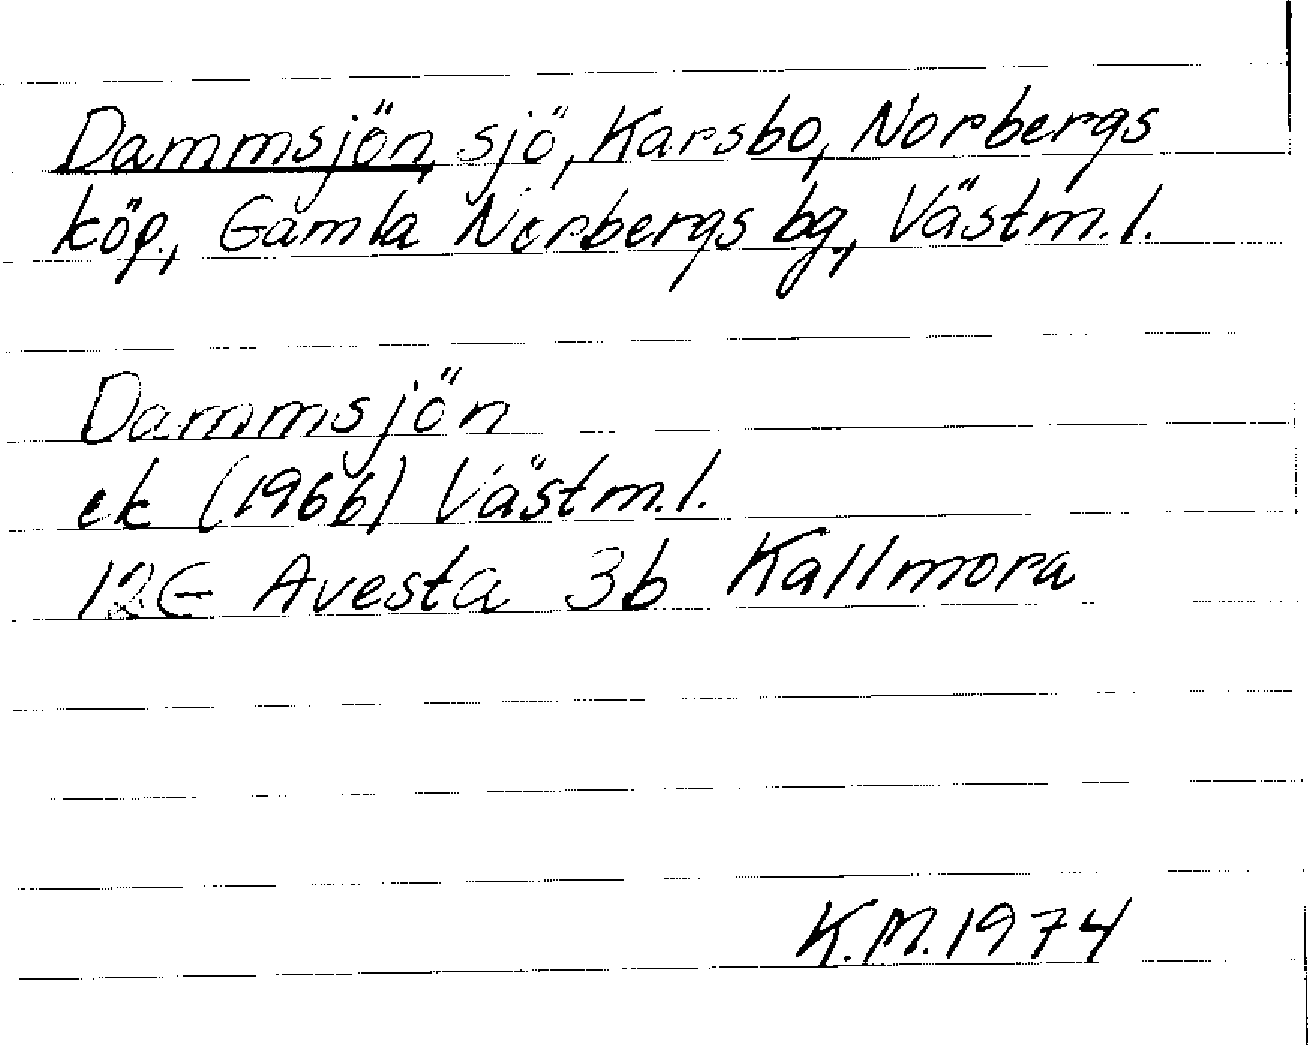 Dammsjön, sjö, Karsbo, Norbergs
köp., Gamla Norbergs bg., Västm.l.
Dammsjön
ek (1966) Västm.l.
12G Avesta 3b Kallmora
K.M. 1974